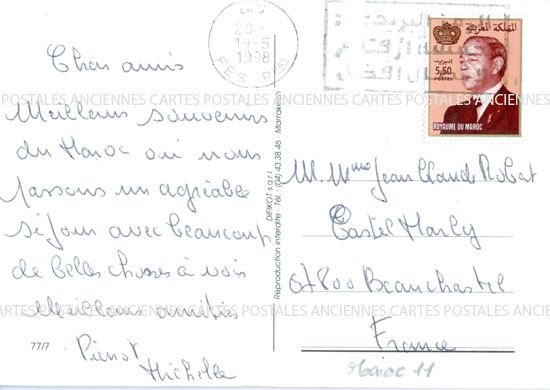 Chers amis
Meilleurs souvenirs
du Maroc où nous
passons un agréable
séjour avec beaucoup
de belles choses à voir
Meilleures amitiés
Pierrot
Michelle
77/7
DIFIKOT s.a.r.l.
Reproduction interdite - Tél. (04) 43.38.46 - Marrakech
19-5
1998
FES
المملكة المغربية
البريد
5,50
POSTES
ROYAUME DU MAROC
M. Mme Jean Claude Robert
Castel Marly
67800 Beauchastel
France
Maroc 11
CARTES POSTALES ANCIENNES CARTES POSTALES ANCIENNES CARTES POSTALES ANCIENNES
CARTES POSTALES ANCIENNES CARTES POSTALES ANCIENNES CARTES POSTALES ANCIENNES